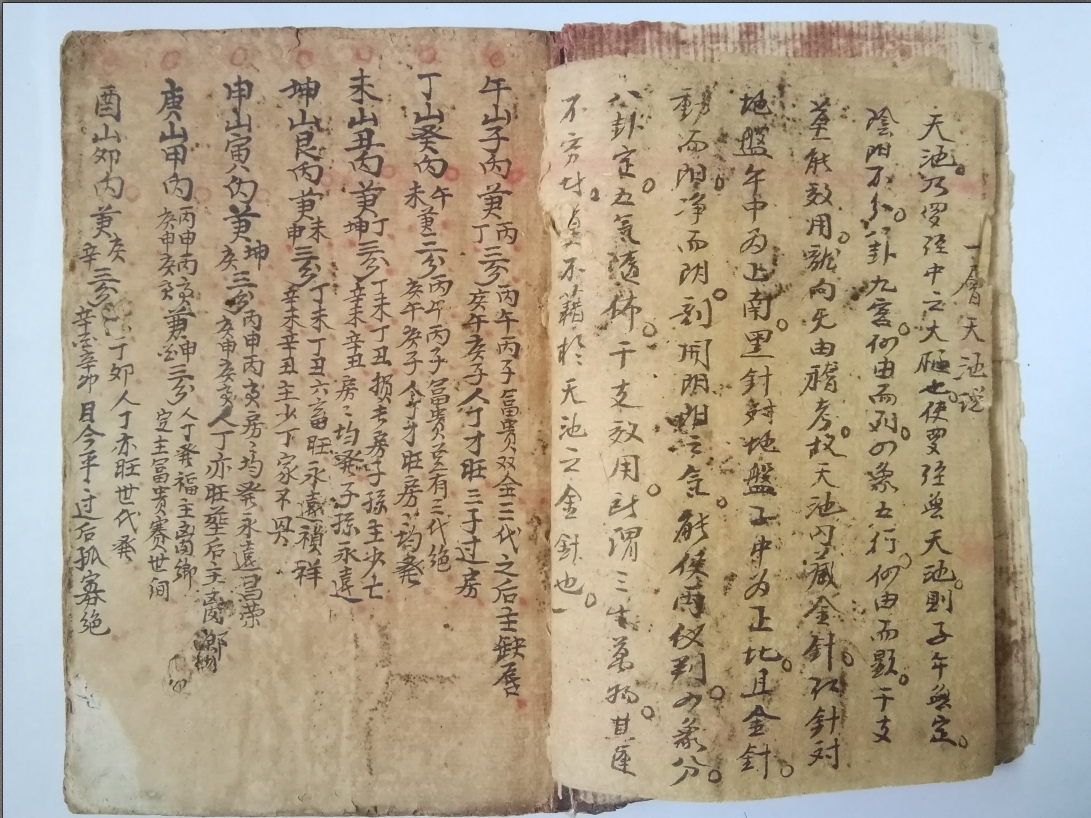 一層天池説
天池乃羅经中之大極也。使羅经無天池。則子午無定。
陰阳不分。八卦九宫。何由而列。四象五行。何由而顕。干支
莫能效用。諏向无由稽考。故天池内藏金針。红針対
地盤午中为正南。黑針対地盤子中为正北。且金針
動而阳。净而阴。剖開阴阳之金。能使两仪判。四象分。
八卦定。五氣遠佈。干支效用。所谓三生萬物。其道
不穷哉。莫不藉於天池之金針也。
午山子内兼丙丁三分丙午丙子富貴双全三代之后主缺唇庚午庚子人丁才旺三子过房
丁山癸内午未兼二分丙午丙子富貴只有三代绝庚午庚子人丁才旺房々均發
未山丑丙兼丁坤三分丁未丁丑损长房子孫主少亡辛未辛丑房々均發子孫永遠
坤山艮丙兼未申三分丁未丁丑六畜旺永遠禎祥辛未辛丑主少丁家不興
申山寅内兼坤庚三分丙申丙寅房々均發永遠昌荣庚申庚寅人丁亦旺葬后主离鄉
庚山甲内丙申丙寅兼申三分人丁發福主离鄉庚申庚寅兼酉定主富貴赛世间
酉山卯内兼庚辛三分丁卯人丁亦旺世代發辛酉辛卯日今平过后孤寡绝